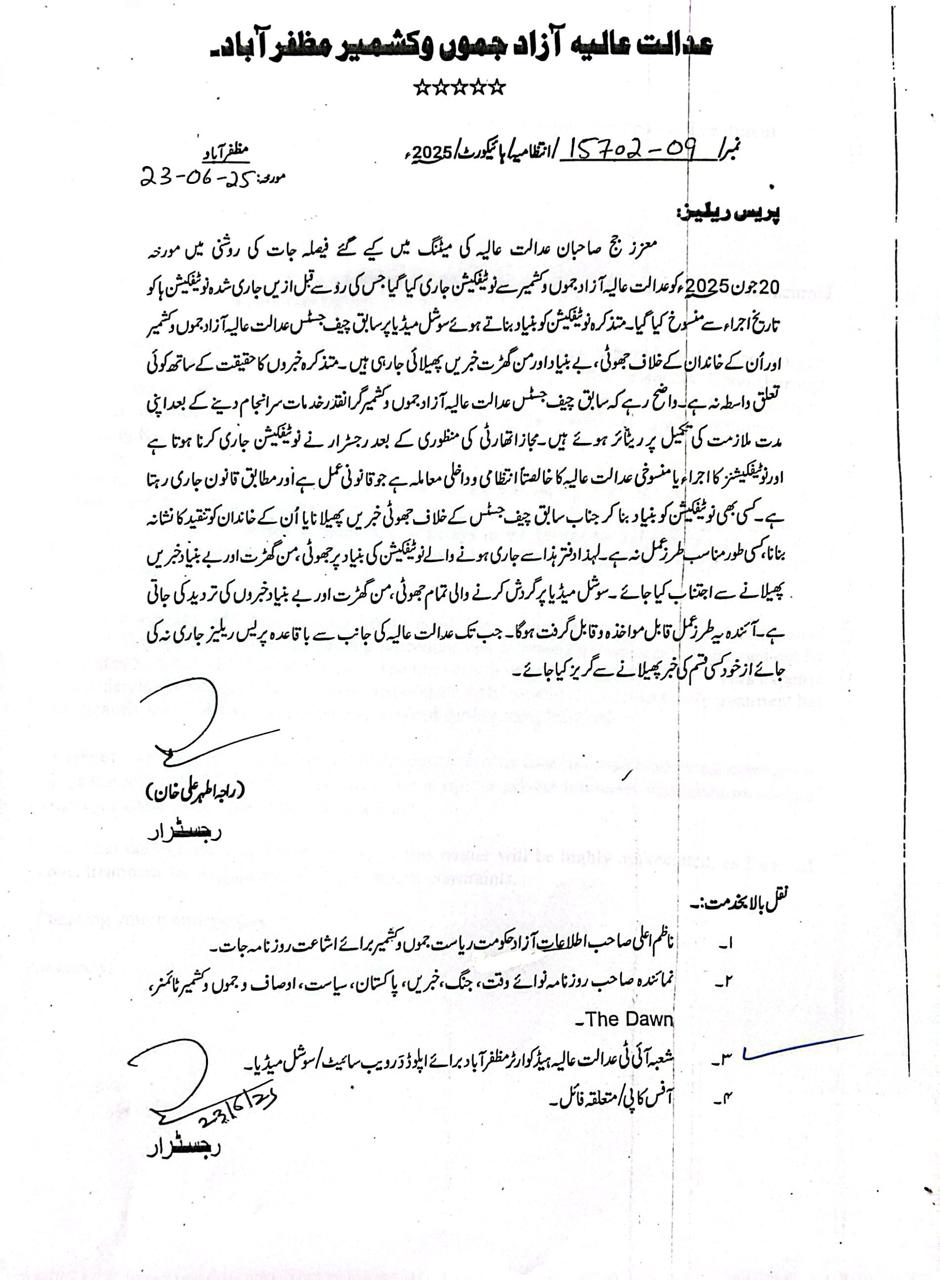 عدالت عالیہ آزاد جموں وکشمیر مظفرآباد۔
☆☆☆☆☆
نمبر/ 15702-09 /انتظامیہ/ہائیکورٹ/2025ء
مظفرآباد
مورخہ: 23-06-25
پریس ریلیز:
معزز جج صاحبان عدالت عالیہ کی میٹنگ میں کیے گئے فیصلہ جات کی روشنی میں مورخہ
20 جون 2025ء کو عدالت عالیہ آزاد جموں وکشمیر سے نوٹیفکیشن جاری کیا گیا جس کی رو سے قبل ازیں جاری شدہ نوٹیفکیشن ہا کو
تاریخ اجراء سے منسوخ کیا گیا۔ متذکرہ نوٹیفکیشن کو بنیاد بناتے ہوئے سوشل میڈیا پر سابق چیف جسٹس عدالت عالیہ آزاد جموں وکشمیر
اور اُن کے خاندان کے خلاف جھوٹی، بے بنیاد اور من گھڑت خبریں پھیلائی جا رہی ہیں۔ متذکرہ خبروں کا حقیقت کے ساتھ کوئی
تعلق واسطہ نہ ہے۔ واضح رہے کہ سابق چیف جسٹس عدالت عالیہ آزاد جموں وکشمیر گرانقدر خدمات سرانجام دینے کے بعد اپنی
مدت ملازمت کی تکمیل پر ریٹائر ہوئے ہیں۔ مجاز اتھارٹی کی منظوری کے بعد رجسٹرار نے نوٹیفکیشن جاری کرنا ہوتا ہے
اور نوٹیفکیشنز کا اجراء یا منسوخی عدالت عالیہ کا خالصتاً انتظامی و داخلی معاملہ ہے جو قانونی عمل ہے اور مطابق قانون جاری رہتا
ہے۔ کسی بھی نوٹیفکیشن کو بنیاد بنا کر جناب سابق چیف جسٹس کے خلاف جھوٹی خبریں پھیلانا یا اُن کے خاندان کو تنقید کا نشانہ
بنانا، کسی طور مناسب طرز عمل نہ ہے۔ لہذا دفتر ہذا سے جاری ہونے والے نوٹیفکیشن کی بنیاد پر جھوٹی، من گھڑت اور بے بنیاد خبریں
پھیلانے سے اجتناب کیا جائے۔ سوشل میڈیا پر گردش کرنے والی تمام جھوٹی، من گھڑت اور بے بنیاد خبروں کی تردید کی جاتی
ہے۔ آئندہ یہ طرز عمل قابل مواخذہ و قابل گرفت ہوگا۔ جب تک عدالت عالیہ کی جانب سے باقاعدہ پریس ریلیز جاری نہ کی
جائے از خود کسی قسم کی خبر پھیلانے سے گریز کیا جائے۔
(راجہ اطہر علی خان)
رجسٹرار
نقل بالا بخدمت:۔
۱۔ ناظم اعلیٰ صاحب اطلاعات آزاد حکومت ریاست جموں وکشمیر برائے اشاعت روزنامہ جات۔
۲۔ نمائندہ صاحب روزنامہ نوائے وقت، جنگ، خبریں، پاکستان، سیاست، اوصاف و جموں وکشمیر ٹائمنر،
The Dawn۔
۳۔ شعبہ آئی ٹی عدالت عالیہ ہیڈ کوارٹر مظفرآباد برائے اپلوڈ دَر ویب سائیٹ/سوشل میڈیا۔
۴۔ آفس کاپی/متعلقہ فائل۔
23/6/25
رجسٹرار